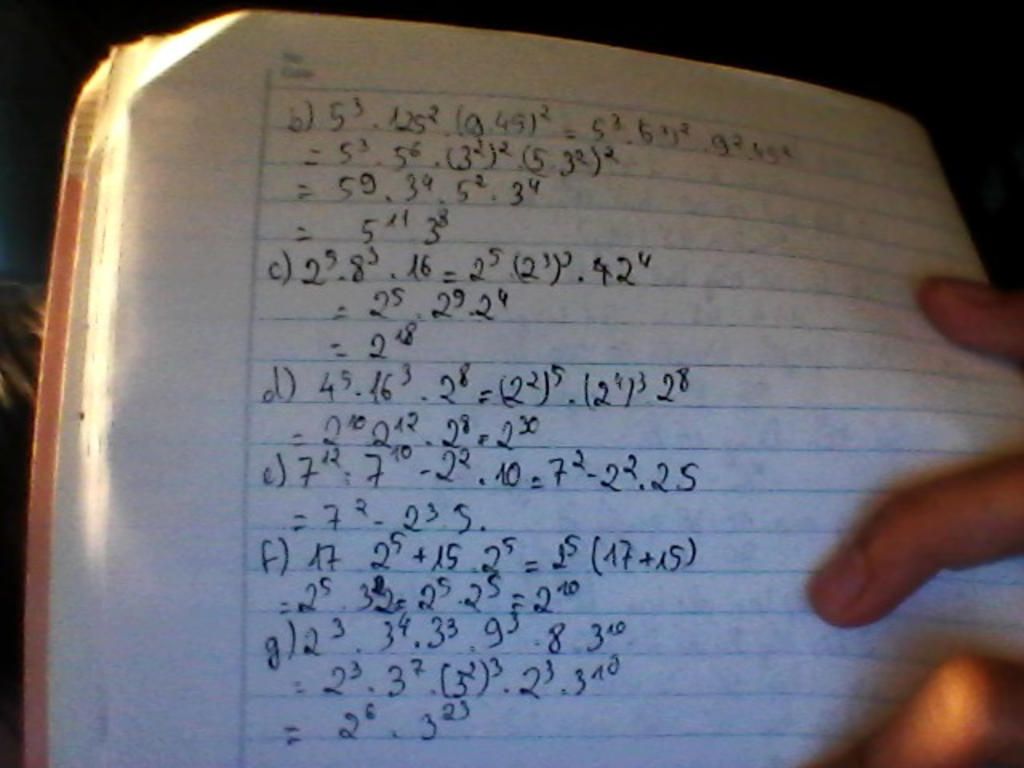 b) 5³ . 125² . (9.45)² = 5³ . (5³)² . 9² . 45²
= 5³ . 5⁶ . (3²)² . (5.3²)²
= 59 . 3⁴ . 5² . 3⁴
= 5¹¹ 3⁸
c) 2⁵ . 8³ . 16 = 2⁵ (2³)³ . 2⁴
= 2⁵ . 2⁹ . 2⁴
= 2¹⁸
d) 4⁵ . 16³ . 2⁸ = (2²)⁵ . (2⁴)³ 2⁸
= 2¹⁰ 2¹² . 2⁸ = 2³⁰
e) 7¹² : 7¹⁰ - 2² . 10 = 7² - 2² . 2 5
= 7² - 2³ 5.
f) 17 2⁵ + 15 . 2⁵ = 2⁵ (17 + 15)
= 2⁵ . 32 = 2⁵ . 2⁵ = 2¹⁰
g) 2³ . 3⁴ . 3³ . 9³ . 8 . 3¹⁰
= 2³ . 3⁷ . (3²)³ . 2³ . 3¹⁰
= 2⁶ . 3²³